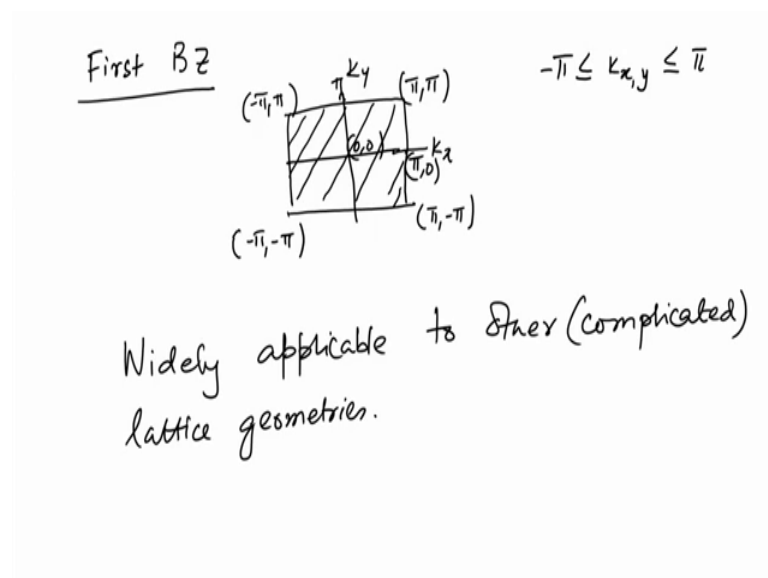 First BZ
-π ≤ kx,y ≤ π
π ky
(-π,π)
(π,π)
(0,0)
kx
(π,0)
(-π,-π)
(π,-π)
Widely applicable to other (complicated)
lattice geometries.